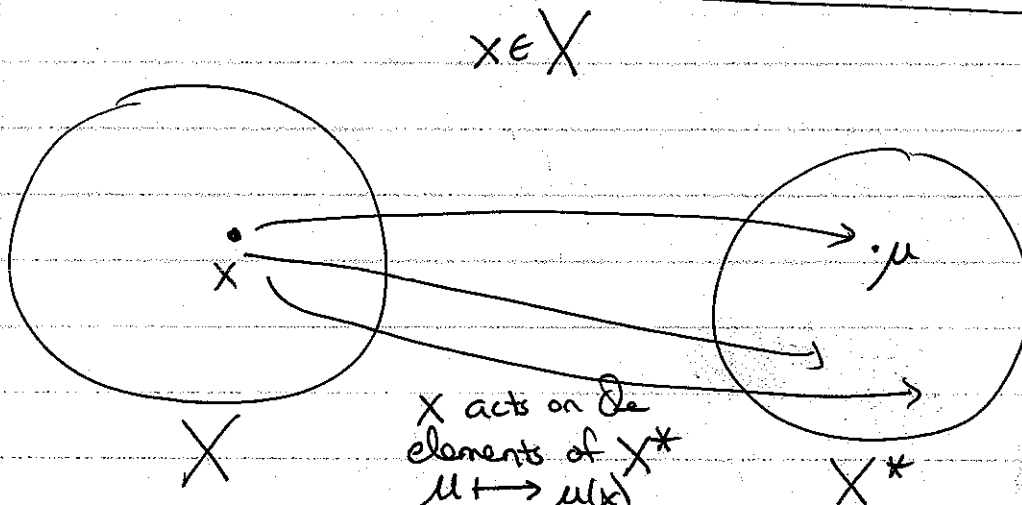 x ∈ X
x
μ
X
x acts on the
elements of X*
μ ↦ μ(x)
X*